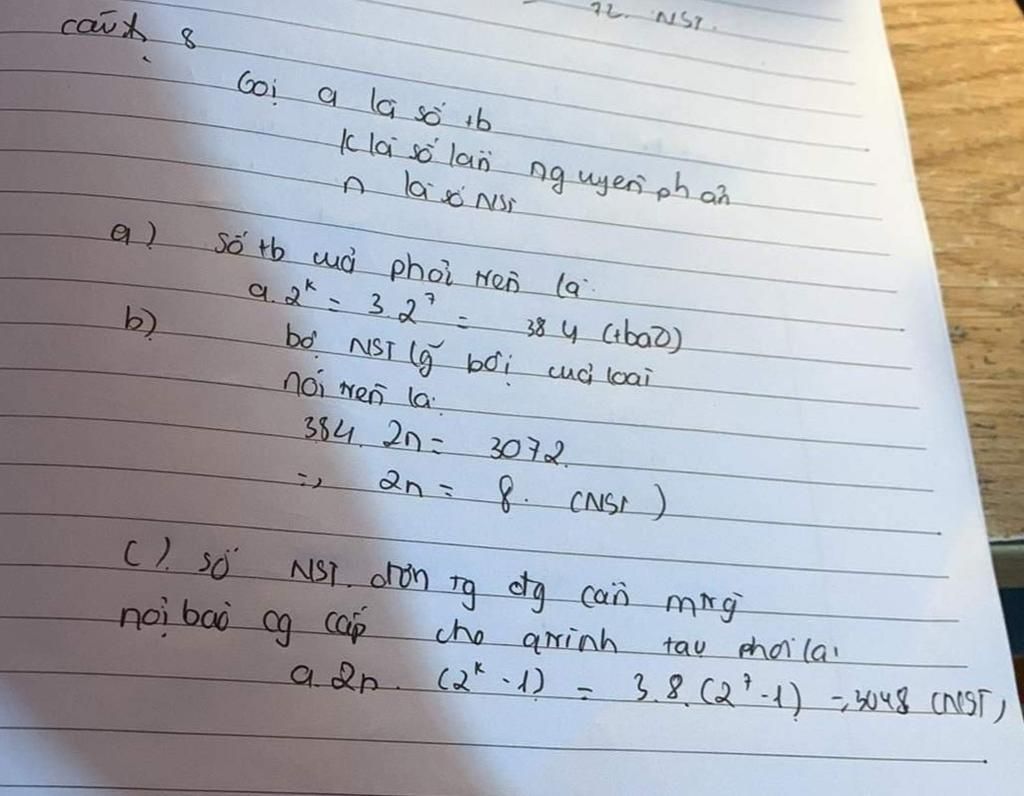 72. NST.
câu 8
Gọi a là số tb
k là số lần nguyên phân
n là số NST
a) số tb của phôi trên là:
a. 2ᵏ = 3. 2⁷ = 384 (tbào)
b) bộ NST lg bội của loài
nói trên là:
384. 2n = 3072.
=> 2n = 8. (NST)
c). số NST. đơn tg đg cần mtrg
nội bào cg cấp cho qtrình tạu phôi là:
a. 2n. (2ᵏ - 1) = 3.8.(2⁷ - 1) = 3048 (NST)